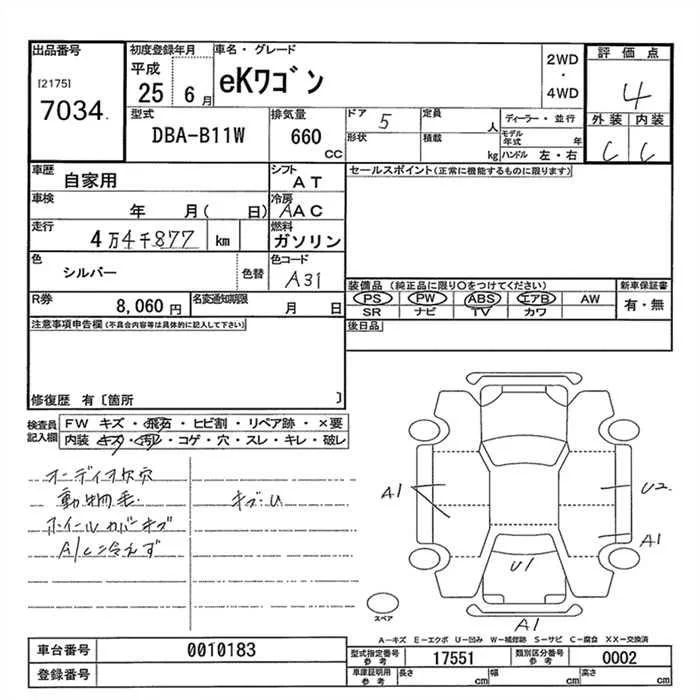 出品番号
[2175]
7034.
初度登録年月
平成
25 6月
車名・グレード
eKワゴン
2WD
・
4WD
評価点
4
外装 内装
C C
型式
DBA-B11W
排気量
660
CC
ドア
5
形状
定員
人
積載
kg
ディーラー・並行
モデル
年式 年
ハンドル 左・右
車歴
自家用
シフト
AT
車検
年 月( 日)
冷房
AAC
走行
4万4千877 km
燃料
ガソリン
色
シルバー
色替
色コード
A31
R券
8,060円
名変通知期限
月 日
セールスポイント(正常に機能するものに限ります)
装備品(純正品に限り○をつけてください)
PS PW ABS エアB AW
SR ナビ TV カワ
新車保証書
有・無
後日品
注意事項申告欄(不具合内容等は具体的に記入して下さい)
修復歴 有〔箇所 〕
検査員
記入欄
FW キズ・飛石・ヒビ割・リペア跡・×要
内装 キズ・汚れ・コゲ・穴・スレ・キレ・破レ
オーディオ欠穴
動物毛.
ホイールカバーキズ
A/C冷えず
キズ・U
A1
U2
A1
U1
A1
スペア
A-キズ E-エクボ U-凹み W-補修跡 S-サビ C-腐食 XX-交換済
車台番号
0010183
登録番号
型式指定番号
参考
17551
類別区分番号
参考
0002
車庫証明用
参考
長さ cm
幅 cm
高さ cm